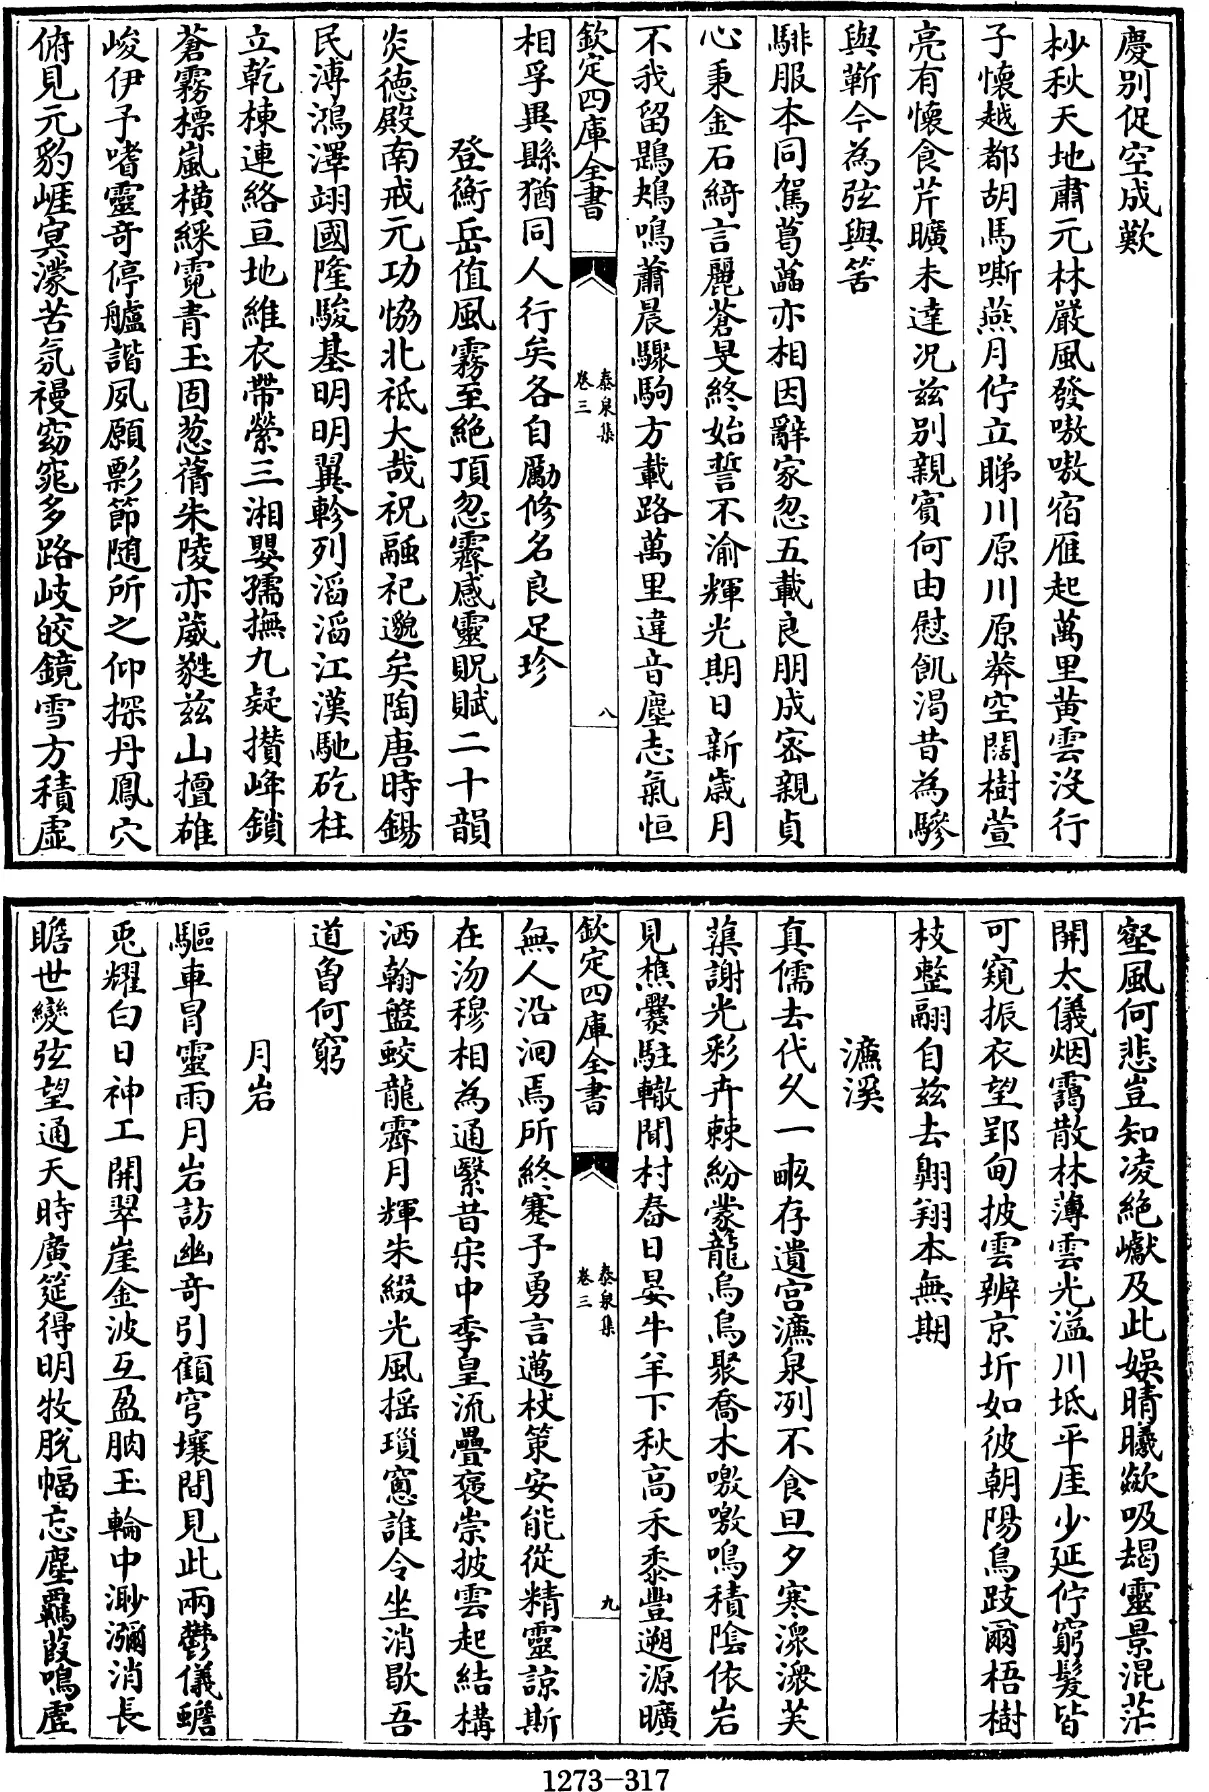 慶别促空成歎
杪秋天地肅元林嚴風發嗷嗷宿雁起萬里黄雲沒行
子懷越都胡馬嘶燕月佇立睇川原川原莽空闊樹萱
亮有懷食芹曠未達况兹别親賓何由慰飢渴昔為驂
與靳今為弦與筈
騑服本同駕葛藟亦相因辭家忽五載良朋成密親貞
心秉金石綺言麗蒼旻終始誓不渝輝光期日新歲月
不我留鶗鴂鳴蕭晨驪駒方載路萬里違音塵志氣恒
欽定四庫全書
泰泉集
卷三
八
相孚異縣猶同人行矣各自勵修名良足珍
登衡岳值風霧至絶頂忽霽感靈貺賦二十韻
炎徳殿南戒元功恊北祗大哉祝融祀邈矣陶唐時錫
民溥鴻澤翊國隆駿基明明翼軫列滔滔江漢馳矻柱
立乾棟連絡亘地維衣帶縈三湘嬰孺撫九疑攅峰鎖
蒼霧標嵐横綵霓青玉固葱蒨朱陵亦葳蕤兹山擅雄
峻伊予嗜靈奇停艫諧夙願彯節随所之仰探丹鳳穴
俯見元豹崕冥濛苦氛祲窈窕多路岐皎鏡雪方積虚
壑風何悲豈知凌絶巘及此娱晴曦歘吸朅靈景混茫
開太儀烟靄散林薄雲光溢川坻平厓少延佇窮髮皆
可窺振衣望郢甸披雲辨京圻如彼朝陽鳥跂爾梧樹
枝整翮自兹去翺翔本無期
濂溪
真儒去代久一畝存遺宫濂泉冽不食旦夕寒潨潨芙
蕖謝光彩卉棘紛蒙龍烏烏聚喬木噭噭鳴積陰依岩
見樵爨駐轍聞村舂日晏牛羊下秋高禾黍豐遡源曠
欽定四庫全書
泰泉集
卷三
九
無人沿洄焉所終蹇予勇言邁杖策安能從精靈諒斯
在沕穆相為通緊昔宋中季皇流疊褒崇披雲起結構
洒翰盤蛟龍霽月輝朱綴光風揺瑣窻誰令坐消歇吾
道魯何窮
月岩
驅車冐靈雨月岩訪幽奇引顧穹壤間見此兩鬱儀蟾
兎耀白日神工開翠崖金波互盈朒玉輪中渺瀰消長
瞻世變弦望通天時廣筵得明牧脱幅忘塵羈葭鳴虚
1273-317